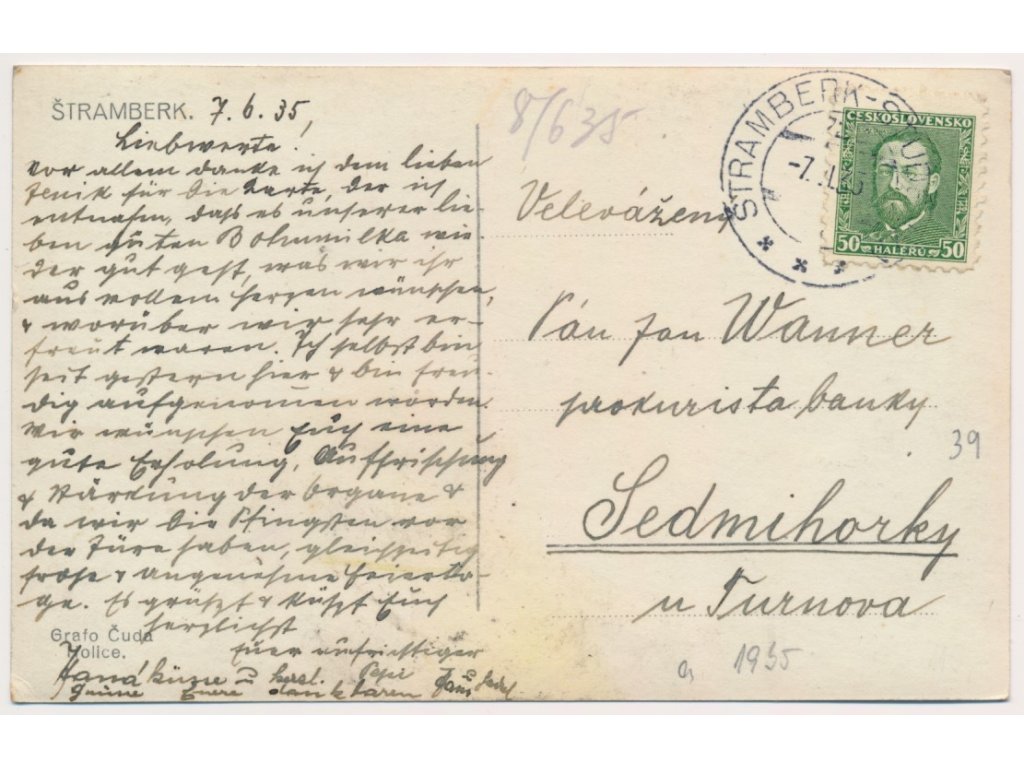 ŠTRAMBERK. 7.6.35
Liebwerte!
vor allem danke ich dem lieben
Zenik für die Karte, der ich
entnahm, dass es unserer lie-
ben guten Bohumilka wie-
der gut geht, was wir ihr
aus vollem Herzen wünschen,
& worüber wir sehr er-
freut waren. Ich selbst bin
seit gestern hier & bin freu-
dig aufgenommen worden.
Wir wünschen Euch eine
gute Erholung, Auffrischung
& Stärkung der Organe &
da wir die Pfingsten vor
der Türe haben, gleichzeitig
frohe & angenehme Feierta-
ge. Es grüsst & küsst Euch
herzlichst
Euer aufrichtiger
Pepi
Euere dankbaren
Grafo Čuda
Holice.
8/6 35
ŠTRAMBERK
ČESKOSLOVENSKO
50 HALÉŘŮ 50
Velevážený
Pán Jan Wanner
prokurista banky
39
Sedmihorky
u Turnova
1935